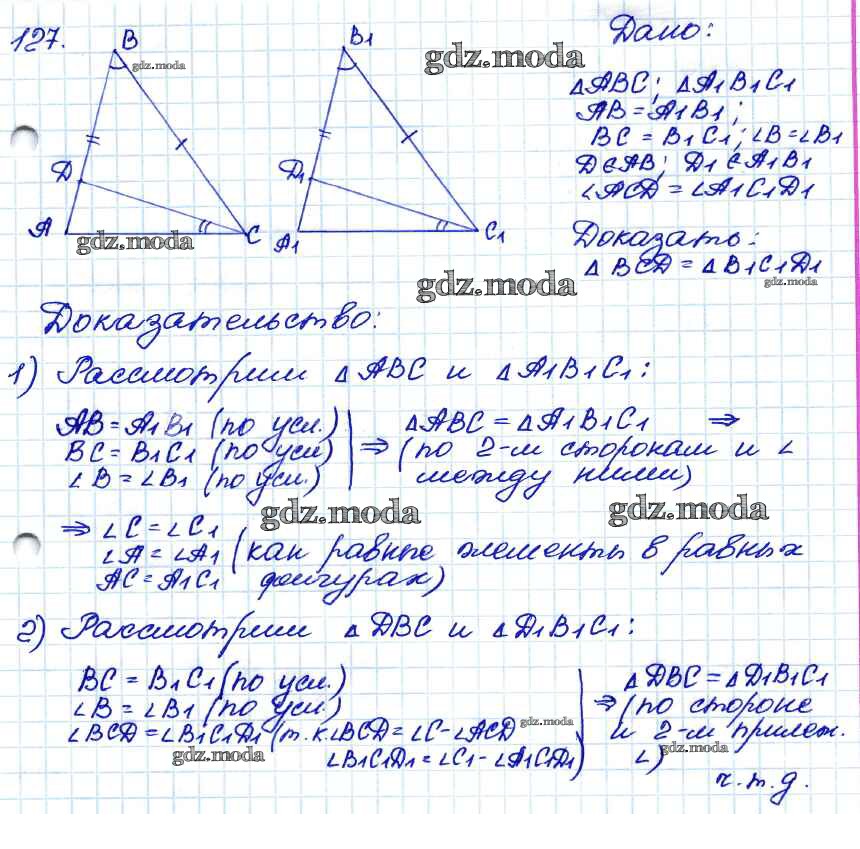 127.
B
B1
D
D1
A
C
A1
C1
gdz.moda
gdz.moda
gdz.moda
Дано:
△ABC; △A1B1C1
AB = A1B1;
BC = B1C1; ∠B = ∠B1
D∈AB; D1∈A1B1
∠ACD = ∠A1C1D1
Доказать:
△BCD = △B1C1D1
gdz.moda
gdz.moda
Доказательство:
1) Рассмотрим △ABC и △A1B1C1:
AB = A1B1 (по усл.)
BC = B1C1 (по усл)
∠B = ∠B1 (по усл.)
⇒ △ABC = △A1B1C1 ⇒
(по 2-м сторонам и ∠
между ними)
gdz.moda
gdz.moda
⇒ ∠C = ∠C1
∠A = ∠A1 (как равные элементы в равных
AC = A1C1 фигурах)
2) Рассмотрим △DBC и △D1B1C1:
BC = B1C1 (по усл.)
∠B = ∠B1 (по усл.)
∠BCD = ∠B1C1D1 (т.к ∠BCD = ∠C - ∠ACD
∠B1C1D1 = ∠C1 - ∠A1C1D1)
gdz.moda
gdz.moda
⇒ △DBC = △D1B1C1
(по стороне
и 2-м прилеж.
∠)
gdz.moda
ч.т.д.